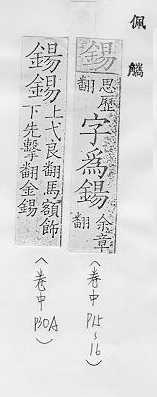 佩觽
錫思歷翻字爲鍚余章翻
(卷中 P15~16)
鍚錫上弋良翻馬額飾下先擊翻金錫
(卷中 P30A)